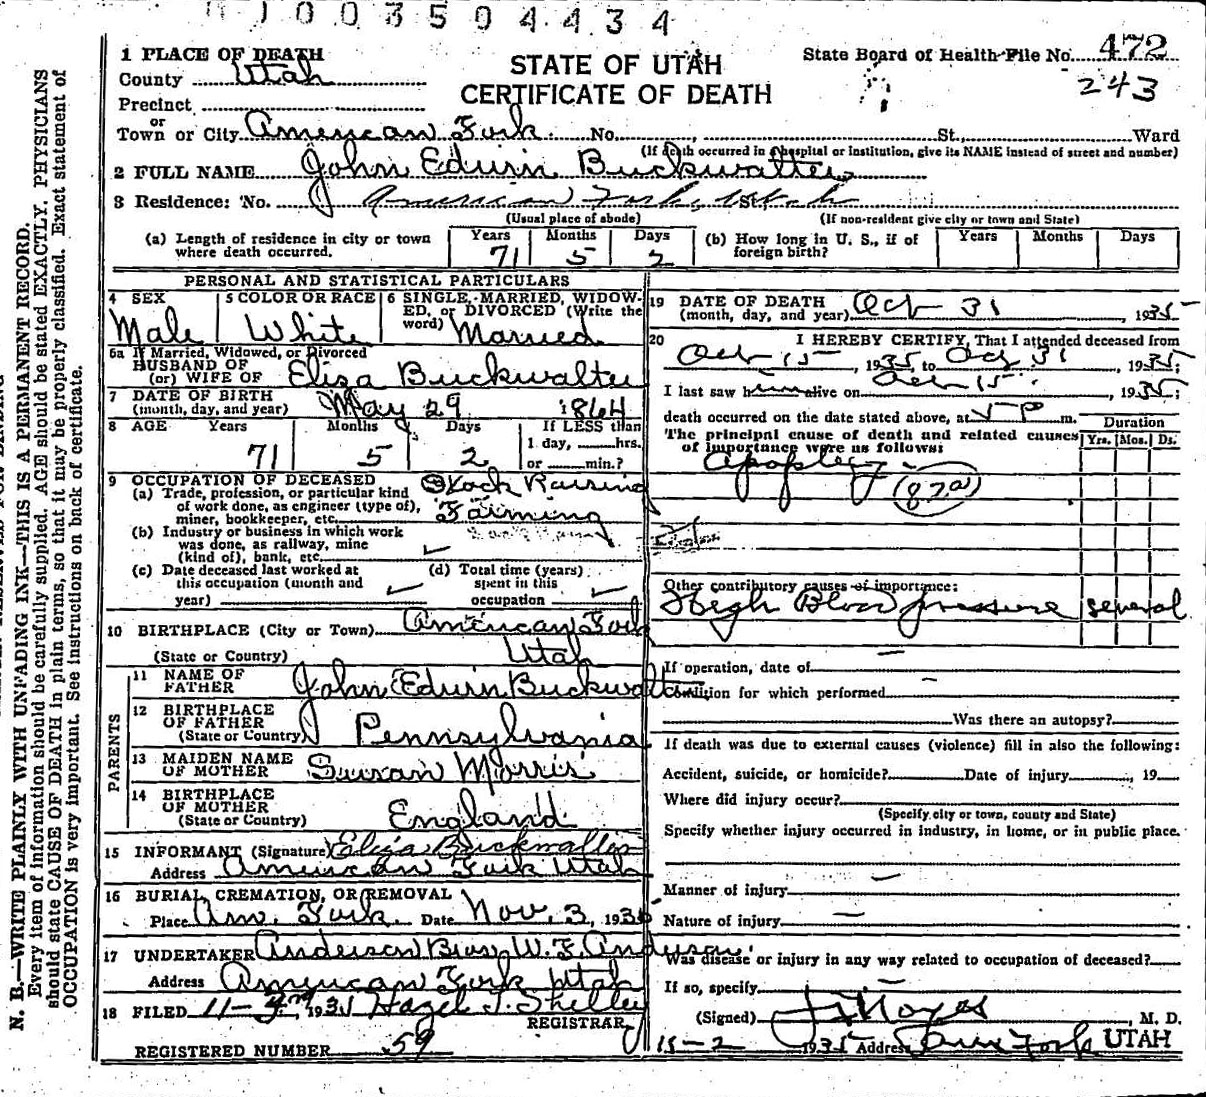 1003504434
STATE OF UTAH
CERTIFICATE OF DEATH
State Board of Health File No. 472
243
1 PLACE OF DEATH
County Utah
Precinct
or
Town or City American Fork No. , St., Ward
(If death occurred in a hospital or institution, give its NAME instead of street and number)
2 FULL NAME John Edwin Buckwalter
3 Residence: No. American Fork, Utah
(Usual place of abode) (If non-resident give city or town and State)
(a) Length of residence in city or town where death occurred. Years 71 Months 5 Days 2
(b) How long in U. S., if of foreign birth? Years Months Days
PERSONAL AND STATISTICAL PARTICULARS
4 SEX Male
5 COLOR OR RACE White
6 SINGLE, MARRIED, WIDOWED, or DIVORCED (Write the word) Married
6a If Married, Widowed, or Divorced
HUSBAND OF
(or) WIFE OF Eliza Buckwalter
7 DATE OF BIRTH
(month, day, and year) May 29 1864
8 AGE Years 71 Months 5 Days 2 If LESS than 1 day, hrs. or min.?
9 OCCUPATION OF DECEASED
(a) Trade, profession, or particular kind of work done, as engineer (type of), miner, bookkeeper, etc. Stock Raising
Farming
(b) Industry or business in which work was done, as railway, mine (kind of), bank, etc.
(c) Date deceased last worked at this occupation (month and year)
(d) Total time (years) spent in this occupation
10 BIRTHPLACE (City or Town) American Fork
(State or Country) Utah
PARENTS
11 NAME OF FATHER John Edwin Buckwalter
12 BIRTHPLACE OF FATHER
(State or Country) Pennsylvania
13 MAIDEN NAME OF MOTHER Susan Morris
14 BIRTHPLACE OF MOTHER
(State or Country) England
15 INFORMANT (Signature) Eliza Buckwalter
Address American Fork Utah
16 BURIAL, CREMATION, OR REMOVAL
Place Am. Fork. Date Nov. 3, 1935
17 UNDERTAKER Anderson Bros, W. F. Anderson.
Address American Fork Utah
18 FILED 11- 1935 Hazel T. Shelley
REGISTRAR
REGISTERED NUMBER 59
19 DATE OF DEATH
(month, day, and year) Oct 31 , 1935
20 I HEREBY CERTIFY, That I attended deceased from
Oct 15 , 1935, to Oct 31 1935;
I last saw him alive on Oct 15 , 1935;
death occurred on the date stated above, at 5 P m.
The principal cause of death and related causes of importance were as follows:
Duration
Yrs. Mos. Ds.
Apoplexy
(82a)
Other contributory causes of importance:
High Blood pressure several
If operation, date of
Condition for which performed
Was there an autopsy?
If death was due to external causes (violence) fill in also the following:
Accident, suicide, or homicide? Date of injury , 19
Where did injury occur?
(Specify city or town, county and State)
Specify whether injury occurred in industry, in home, or in public place.
Manner of injury
Nature of injury
Was disease or injury in any way related to occupation of deceased?
If so, specify
(Signed) Noyes , M. D.
11-2 1935 Address Am Fork UTAH
N. B.—WRITE PLAINLY WITH UNFADING INK—THIS IS A PERMANENT RECORD.
Every item of information should be carefully supplied. AGE should be stated EXACTLY. PHYSICIANS
should state CAUSE OF DEATH in plain terms, so that it may be properly classified. Exact statement of
OCCUPATION is very important. See instructions on back of certificate.